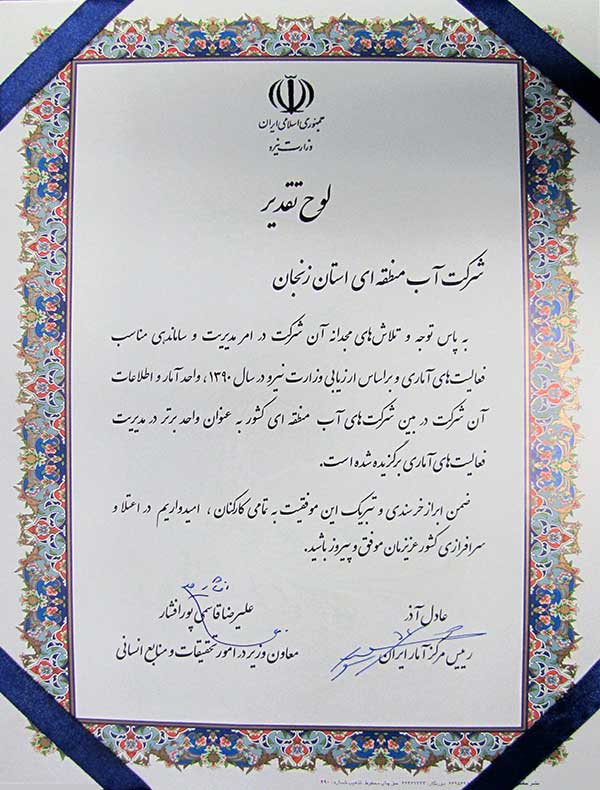 جمهوری اسلامی ایران
وزارت نیرو
لوح تقدیر
شرکت آب منطقه ای استان زنجان
به پاس توجه و تلاش‌های مجدانه آن شرکت در امر مدیریت و ساماندهی مناسب
فعالیت‌های آماری و براساس ارزیابی وزارت نیرو در سال ۱۳۹۰، واحد آمار و اطلاعات
آن شرکت در بین شرکت‌های آب منطقه ای کشور به عنوان واحد برتر در مدیریت
فعالیت‌های آماری برگزیده شده است.
ضمن ابراز خرسندی و تبریک این موفقیت به تمامی کارکنان، امیدواریم در اعتلا و
سرافرازی کشور عزیزمان موفق و پیروز باشید.
عادل آذر
رییس مرکز آمار ایران
علیرضا قاسمی پورافشار
معاون وزیر در امور تحقیقات و منابع انسانی